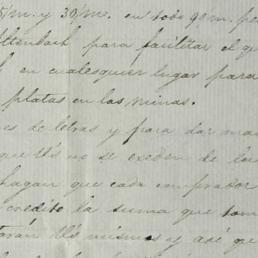 5/m. y 30/m. en todo 90 m. pe
ttenbach para facilitar el qu
en cualesquier lugar para
platas en las minas.
es de letras y para dar ma
que Us no se exeden de la
hagan que cada comprador
credito la suma que tom
arán Us mismos y así qe